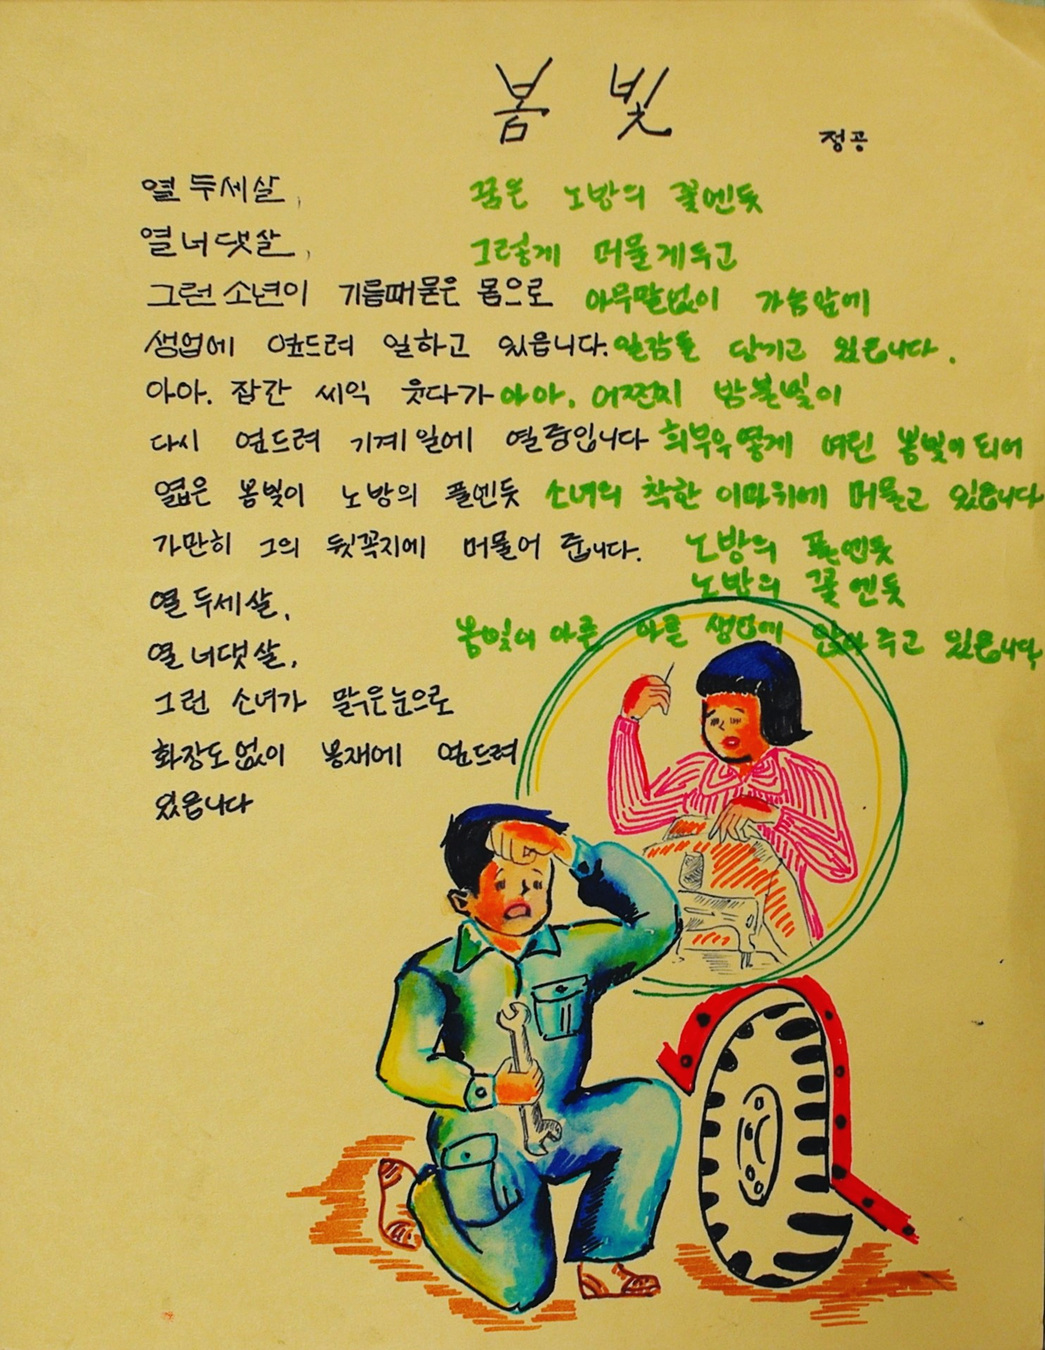 봄 빛
정공
열 두세살,
열 너댓살,
그런 소년이 기름때묻은 몸으로
생업에 엎드려 일하고 있읍니다.
아아. 잠간 씨익 웃다가
다시 엎드려 기계일에 열중입니다
엷은 봄빛이 노방의 풀엔듯
가만히 그의 뒷꼭지에 머물어 줍니다.
열 두세살,
열 너댓살,
그런 소녀가 맑은눈으로
화장도 없이 봉재에 엎드려
있읍니다
꿈은 노방의 꽃엔듯
그렇게 머물게두고
아무말없이 가슴앞에
일감을 당기고 있읍니다.
아아, 어쩐지 밤불빛이
희부우옇게 여린 봄빛이 되어
소녀의 착한 이마위에 머물고 있읍니다
노방의 풀엔듯
노방의 꽃엔듯
봄빛이 아픈 아픈 생업에 앉아 주고 있읍니다